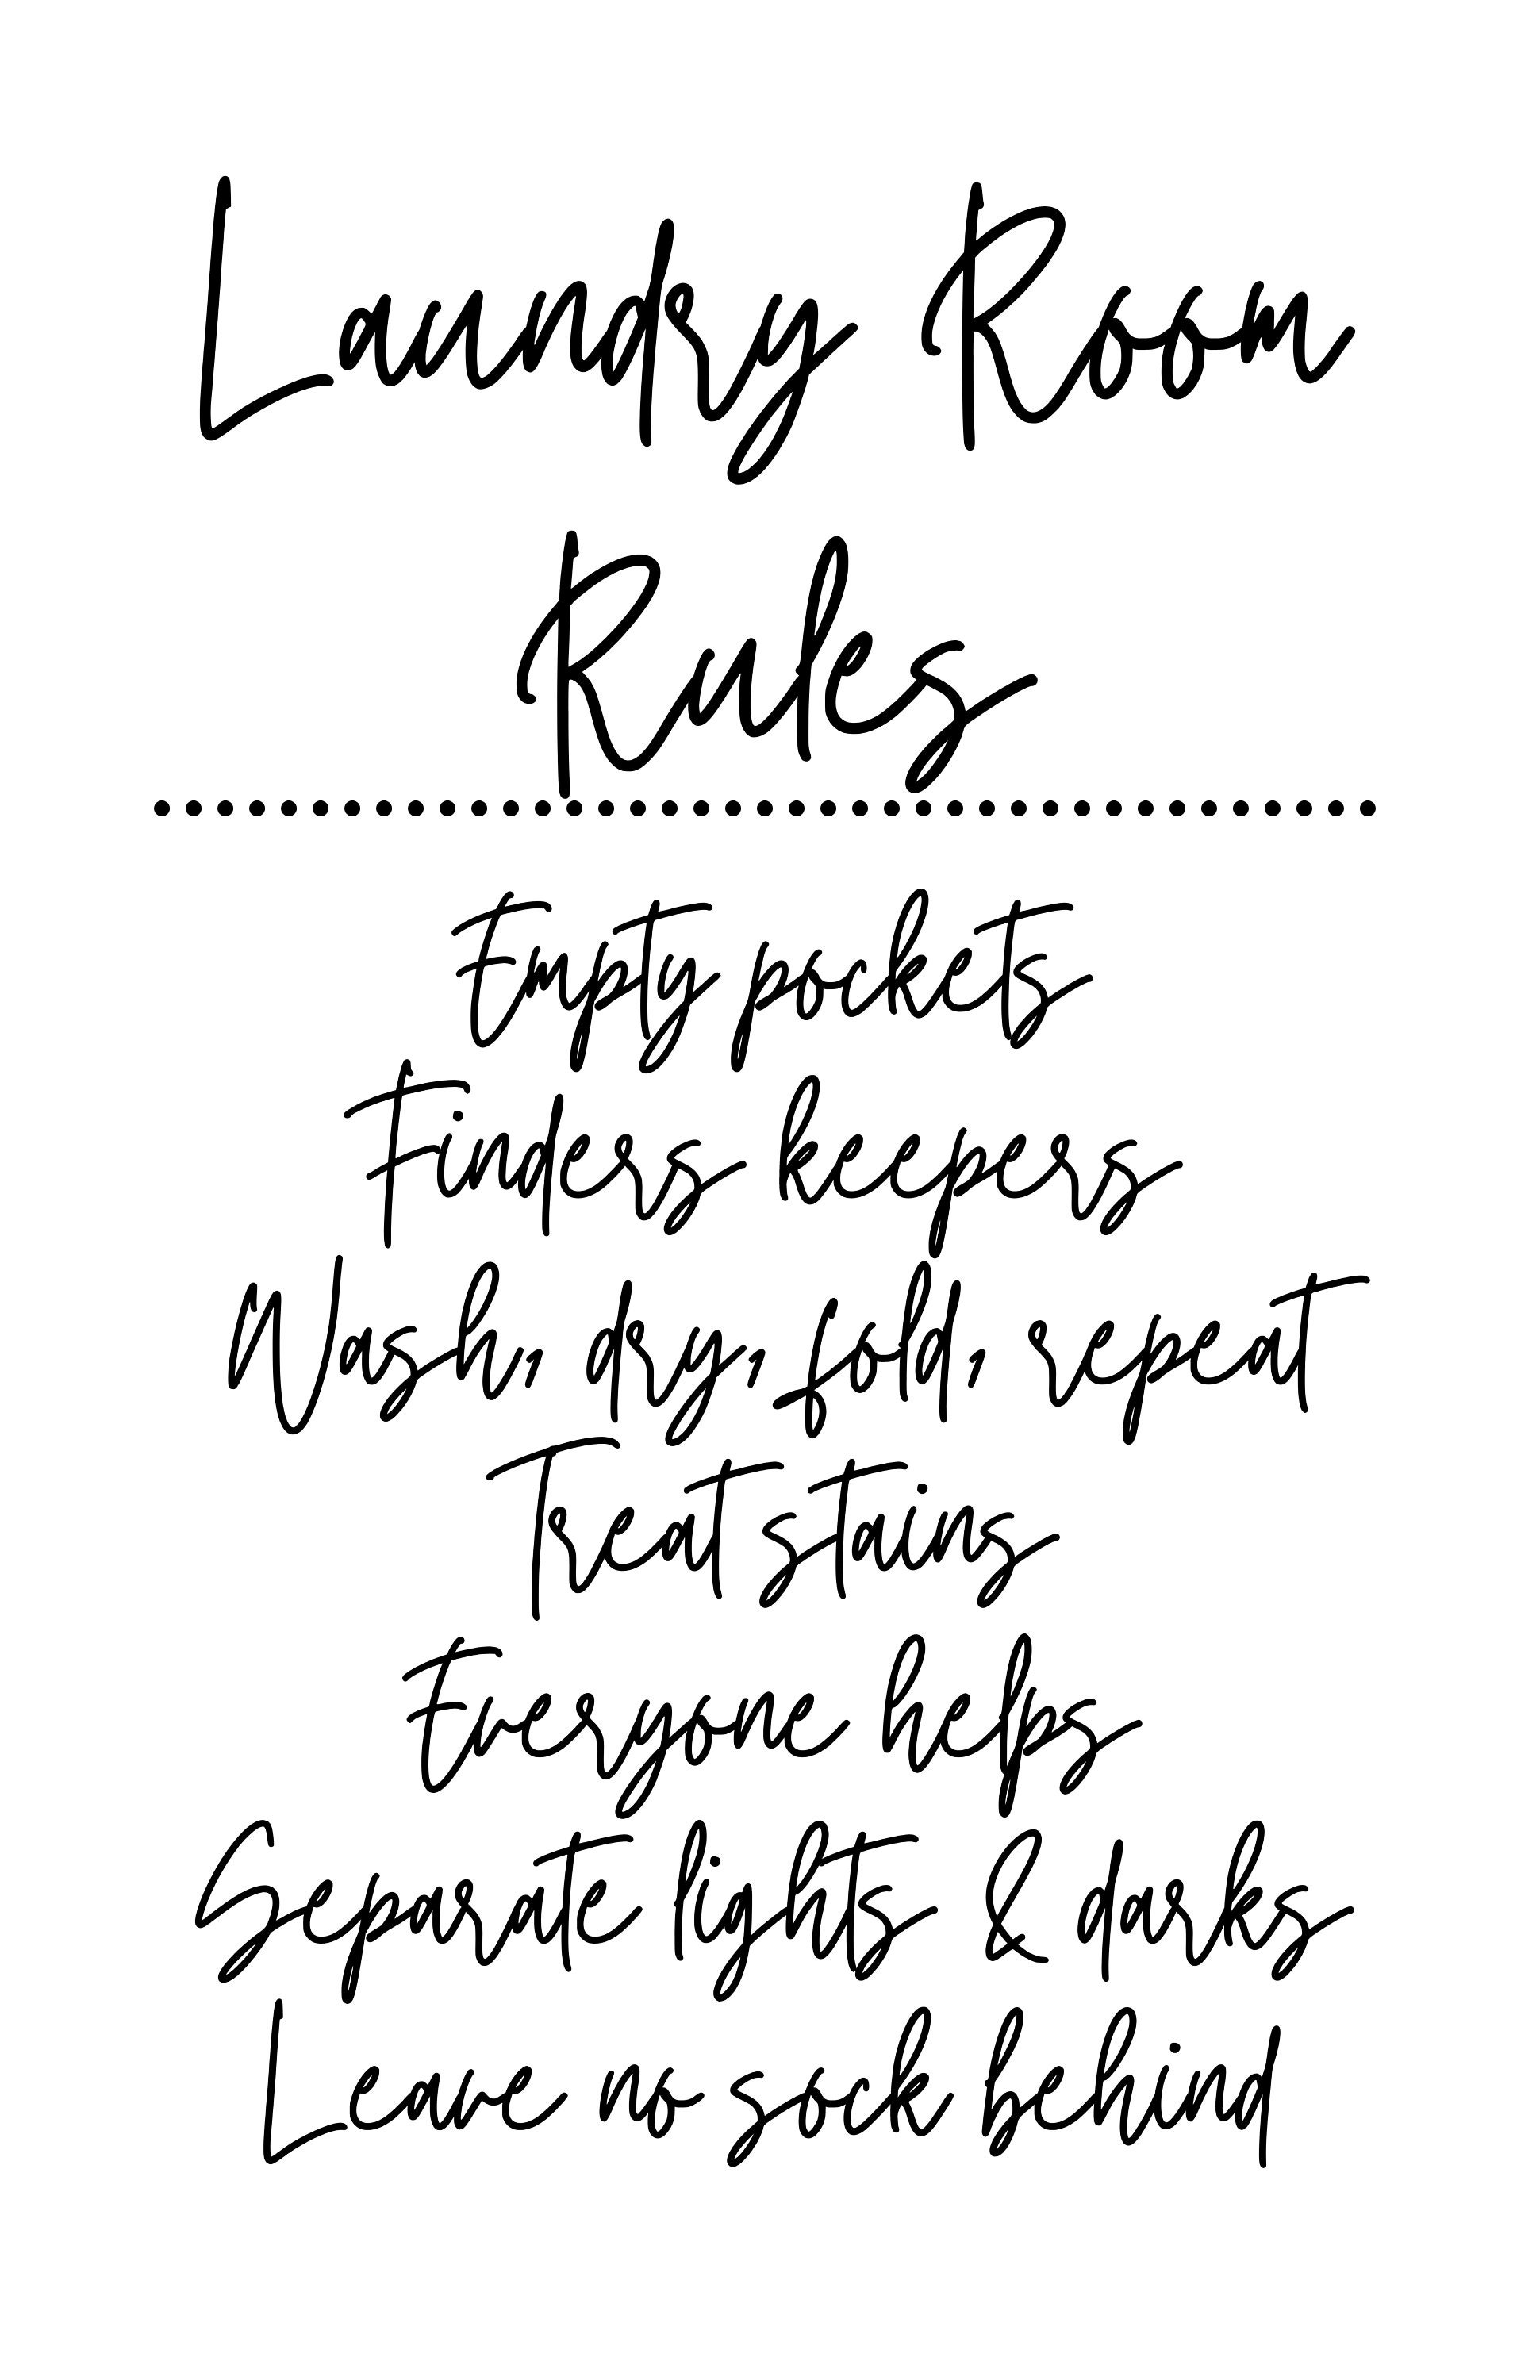 Laundry Room
Rules
Empty pockets
Finders keepers
Wash, dry, fold, repeat
Treat stains
Everyone helps
Separate lights & darks
Leave no sock behind